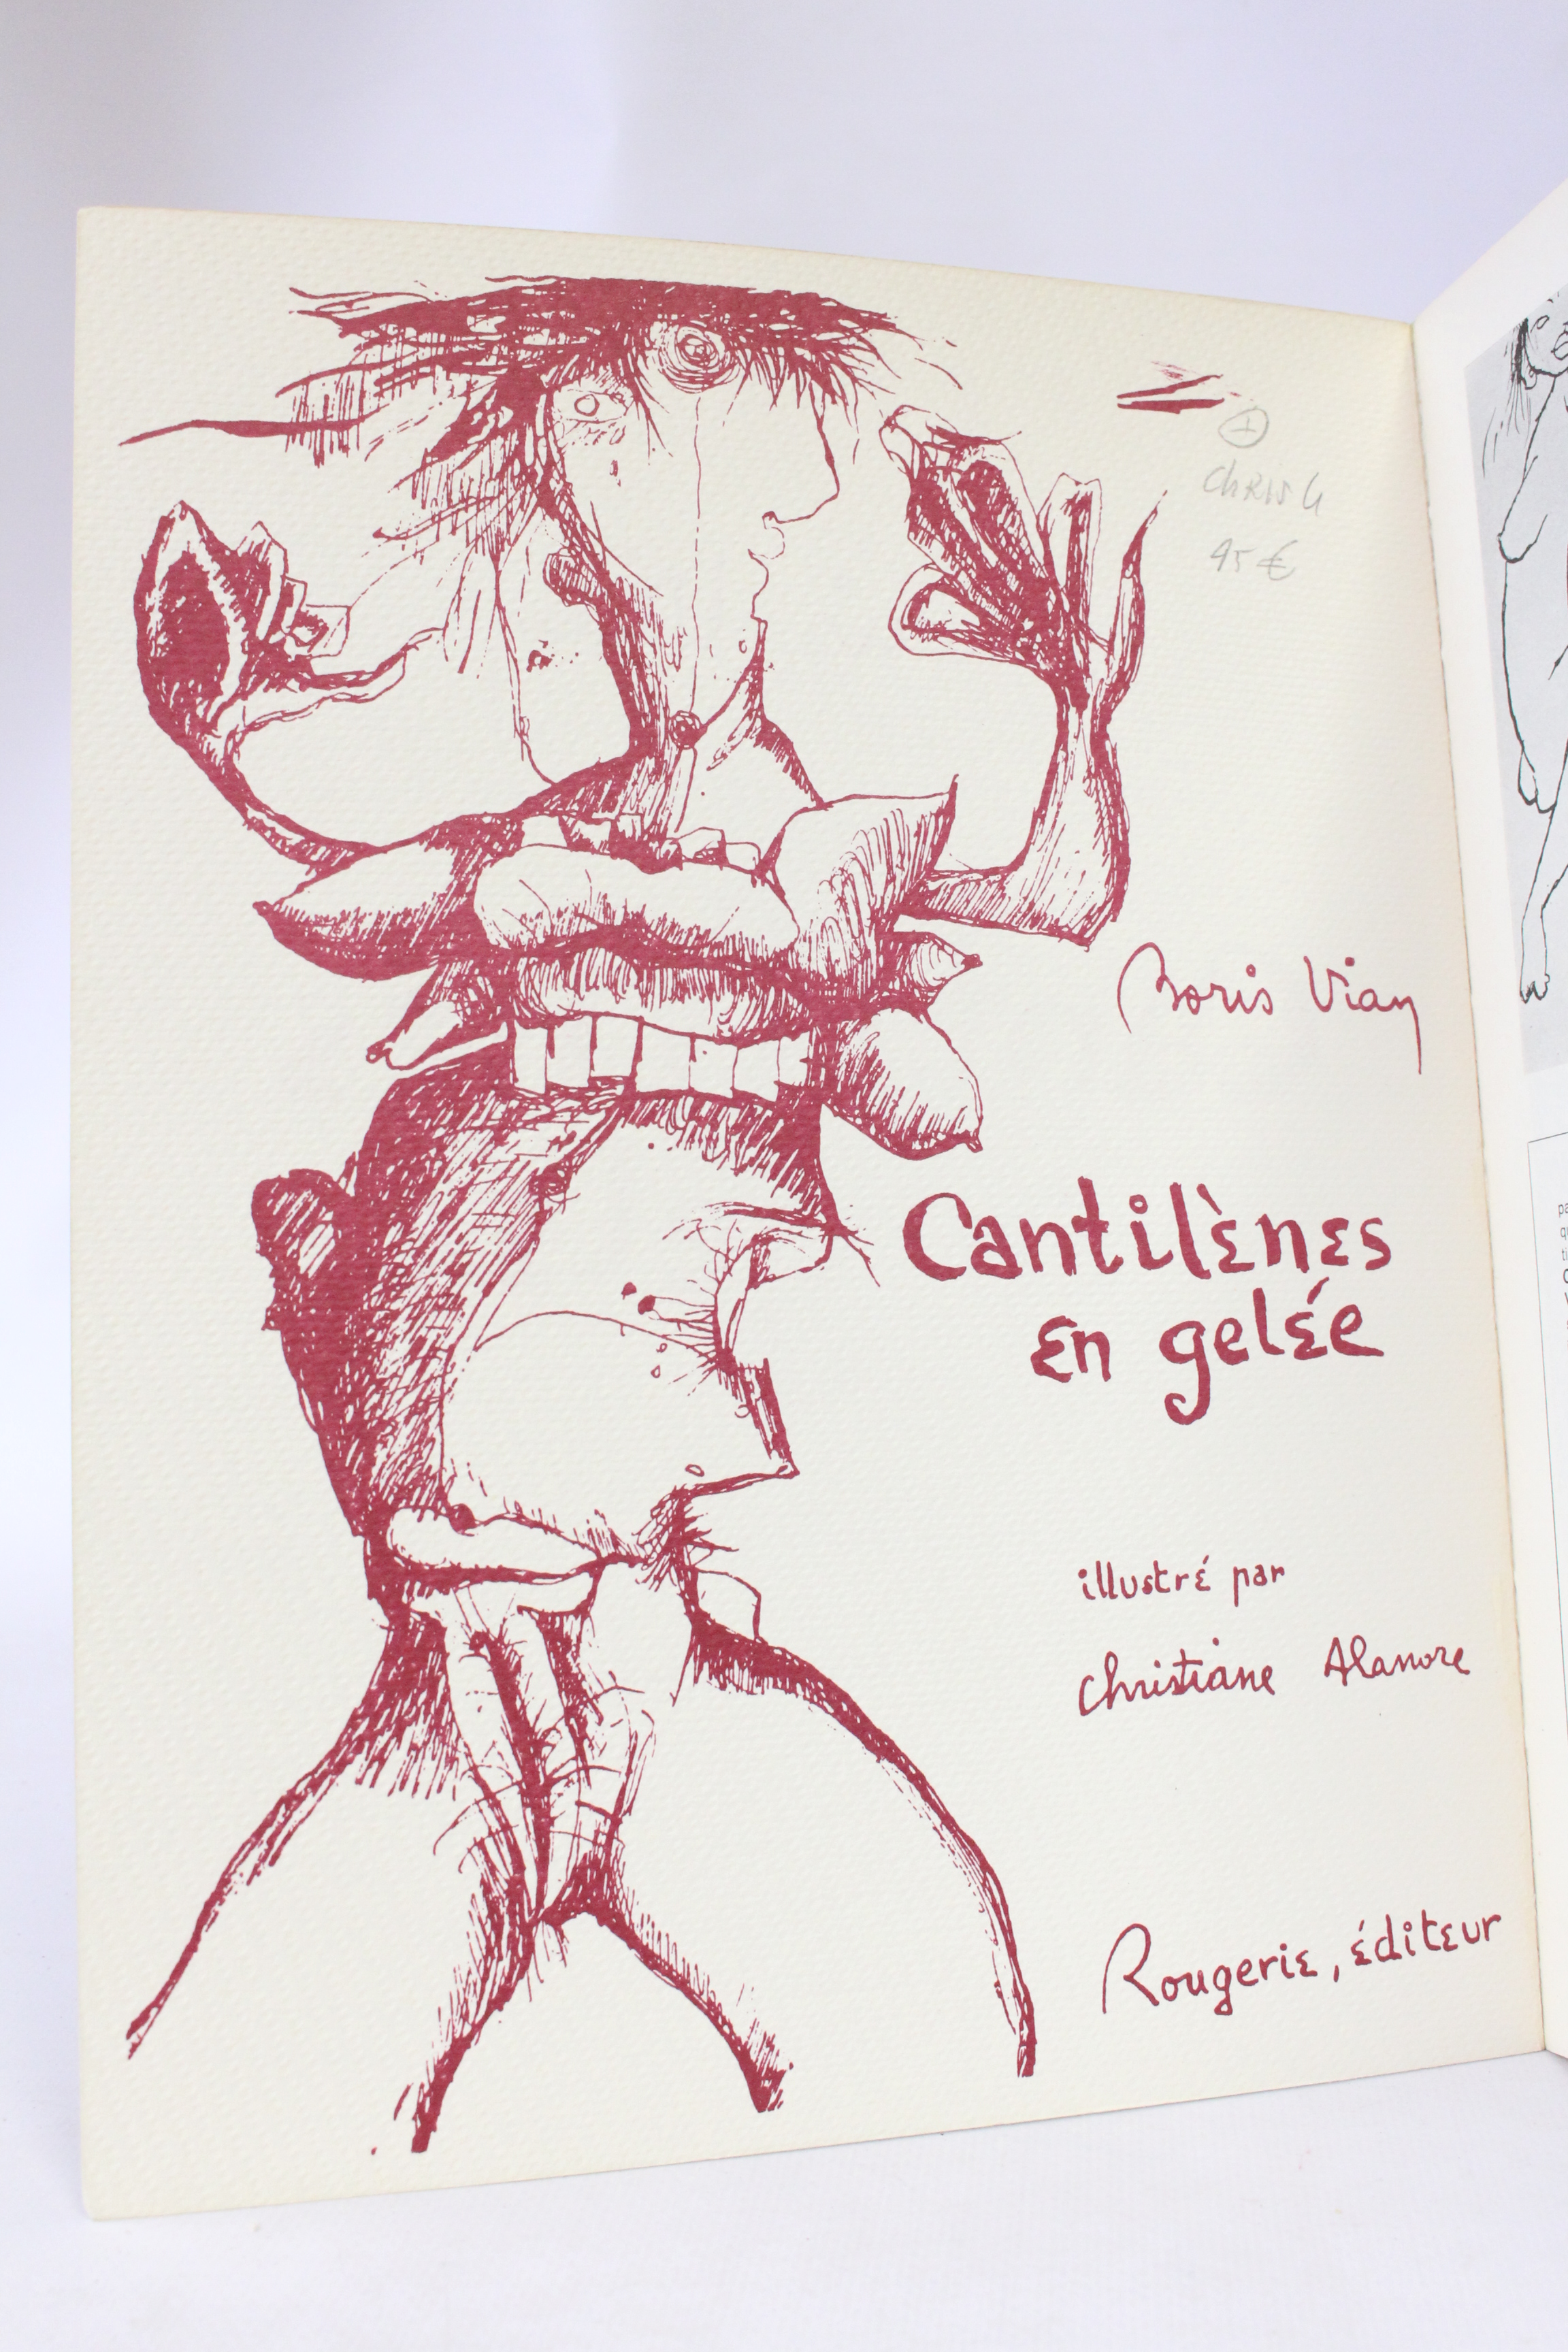 45 €
Boris Vian
Cantilènes
en gelée
illustré par
Christiane Alanore
Rougerie, éditeur